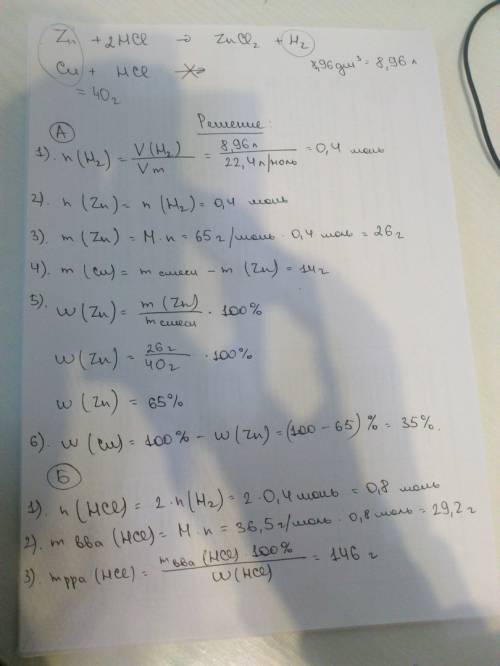 Zn + 2HCl → ZnCl₂ + H₂
Cu + HCl ↛ 8,96 дм³ = 8,96 л
= 40г
Решение:
А
1). n(H₂) = V(H₂)/Vm = 8,96 л/22,4 л/моль = 0,4 моль
2). n(Zn) = n(H₂) = 0,4 моль
3). m(Zn) = M·n = 65 г/моль · 0,4 моль = 26 г
4). m(Cu) = m смеси − m(Zn) = 14 г
5). w(Zn) = m(Zn)/m смеси · 100%
w(Zn) = 26 г/40 г · 100%
w(Zn) = 65%
6). w(Cu) = 100% − w(Zn) = (100 − 65)% = 35%.
Б
1). n(HCl) = 2·n(H₂) = 2·0,4 моль = 0,8 моль
2). m вва (HCl) = M·n = 36,5 г/моль · 0,8 моль = 29,2 г
3). m рра (HCl) = m вва (HCl) 100%/W(HCl) = 146 г